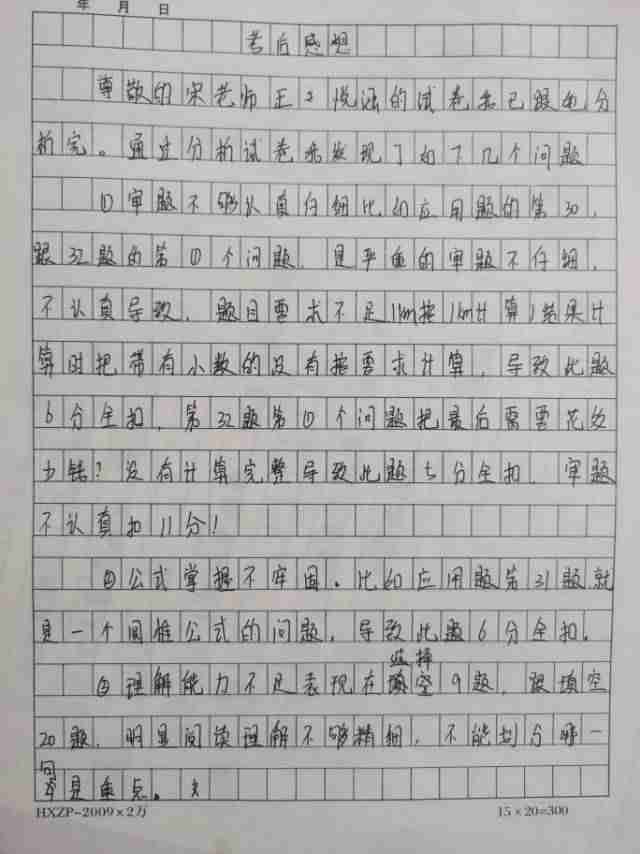 年 月 日
考后感想
尊敬的宋老师王悦涵的试卷我已跟她分
析完。通过分析试卷来发现了如下几个问题
①审题不够认真仔细比如应用题的第30,
跟32题的第①个问题,是严重的审题不仔细,
不认真导致,题目要求不足1km按1km计算,结果计
算时把带有小数的没有按要求计算,导致此题
6分全扣,第32题第①个问题把最后需要花多
少钱?没有计算完整导致此题5分全扣,审题
不认真扣11分!
②公式掌握不牢固。比如应用题第31题就
是一个圆锥公式的问题,导致此题6分全扣。
③理解能力不足表现在选择9题,跟填空
20题,明显阅读理解不够精细,不能划分哪一
句是重点。
HXZP-2009×2万 15×20=300